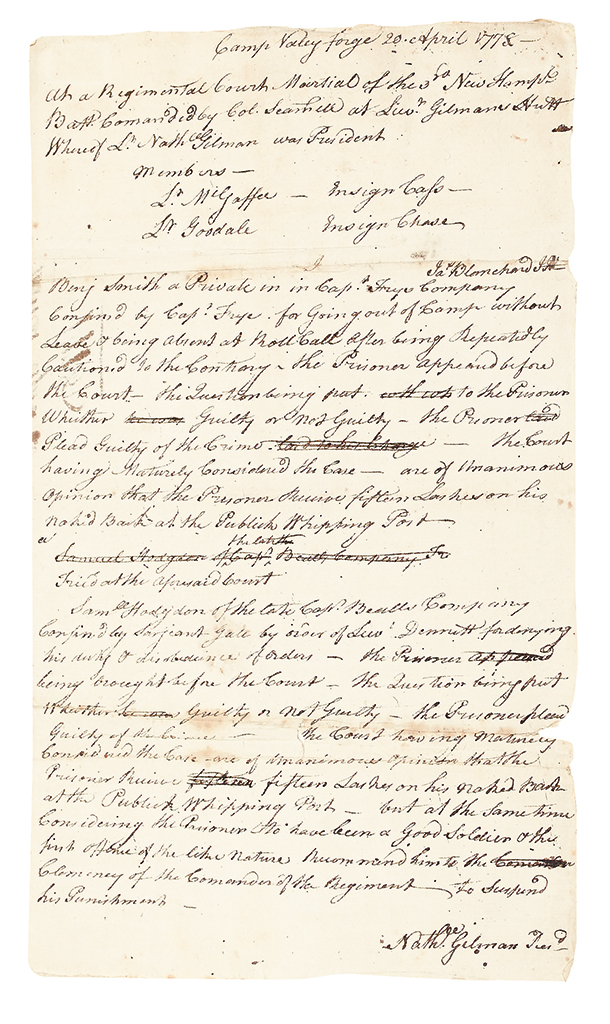 Camp Valey forge 20. April 1778 —
At a Regimental Court Martial of the 3rd New Hampr
Batt. Comanded by Col. Scamell at Lieut Gilmans Hutt
Whereof Lt Nathel Gilman was President
Members —
Lt McGaffee — Ensign Cass —
Lt Goodale Ensign Chase
Jas Blanchard
Benj Smith a Private in in Capt Frye Company
Confined by Capt Frye . for Going out of Camp without
Leave & being absent at Roll Call after being Repeatedly
Cautiond to the Contrary — the Prisoner appeard before
the Court — the Question being put. to the Prisoner
Whether he was Guilty or Not Guilty — the Prisoner
Plead Guilty of the Crime laid to his Charge — the Court
having Maturely Considered the Case — are of Unanimous
Opinion that the Prisoner Receive fifteen Lashes on his
Naked Back at the Publick Whipping Post —
the late
a Samuel Hodgdon of Capt Bealls Company Tr
Tried at the aforesaid Court
Samll Hodgdon of the late Capt Bealls Company
Confined by Sarjeant Gale by order of Lieut Dennett for denying
his duty & disobedience of orders — the Prisoner appeard
being brought before the Court — the Question being put
Whether he was Guilty or Not Guilty — the Prisoner plead
Guilty of the Crime — the Court having Maturely
Considered the Case — are of Unanimous opinion that the
Prisoner Receive fifteen fifteen Lashes on his Naked Back
at the Publick Whipping Post — but at the same time
Considering the Prisoner to have been a Good Soldier & this
first offence of the like Nature Recommend him to the
Clemency of the Comander of the Regiment — to Suspend
his Punishment —
Nathel Gilman Presd